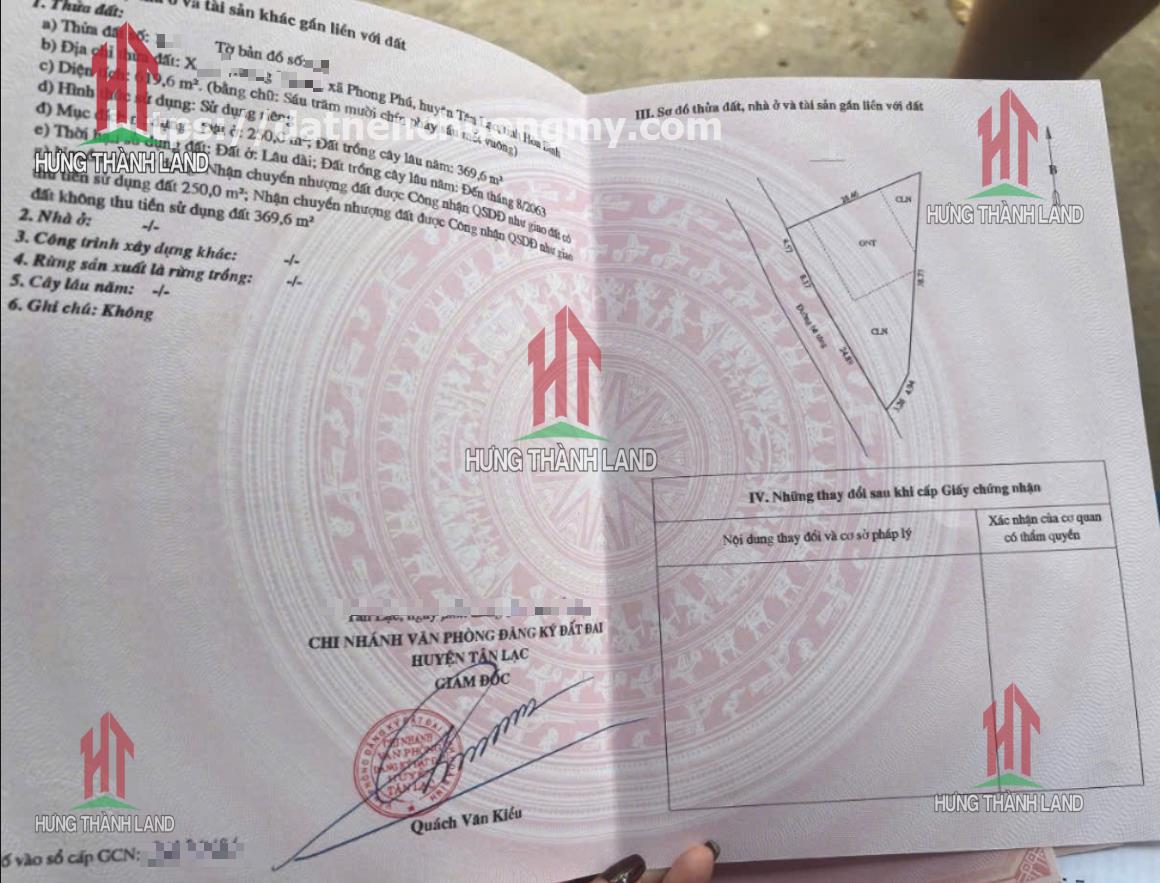 ở và tài sản khác gắn liền với đất
1. Thửa đất:
a) Thửa đất số: Tờ bản đồ số:
b) Địa chỉ thửa đất: X xã Phong Phú, huyện Tân Lạc, tỉnh Hòa Bình
c) Diện tích: 619,6 m². (bằng chữ: Sáu trăm mười chín phẩy sáu mét vuông)
d) Hình thức sử dụng: Sử dụng riêng
đ) Mục đích ở: 250,0 m²; Đất trồng cây lâu năm: 369,6 m²
e) Thời hạn sử dụng đất: Đất ở: Lâu dài; Đất trồng cây lâu năm: Đến tháng 8/2063
Nhận chuyển nhượng đất được Công nhận QSDĐ như giao đất có
thu tiền sử dụng đất 250,0 m²; Nhận chuyển nhượng đất được Công nhận QSDĐ như giao
đất không thu tiền sử dụng đất 369,6 m²
2. Nhà ở: -/-
3. Công trình xây dựng khác: -/-
4. Rừng sản xuất là rừng trồng: -/-
5. Cây lâu năm: -/-
6. Ghi chú: Không
https://datnenchuongmy.com
CHI NHÁNH VĂN PHÒNG ĐĂNG KÝ ĐẤT ĐAI
HUYỆN TÂN LẠC
GIÁM ĐỐC
CHI NHÁNH
VĂN PHÒNG
ĐĂNG KÝ ĐẤT ĐAI
HUYỆN
TÂN LẠC
Quách Văn Kiều
số vào sổ cấp GCN:
III. Sơ đồ thửa đất, nhà ở và tài sản gắn liền với đất
B
CLN
ONT
4.57
8.37
CLN
Đường bê tông
24.89
4.94
IV. Những thay đổi sau khi cấp Giấy chứng nhận
Nội dung thay đổi và cơ sở pháp lý
Xác nhận của cơ quan
có thẩm quyền
HƯNG THÀNH LAND
HƯNG THÀNH LAND
HƯNG THÀNH LAND
HƯNG THÀNH LAND
HƯNG THÀNH LAND